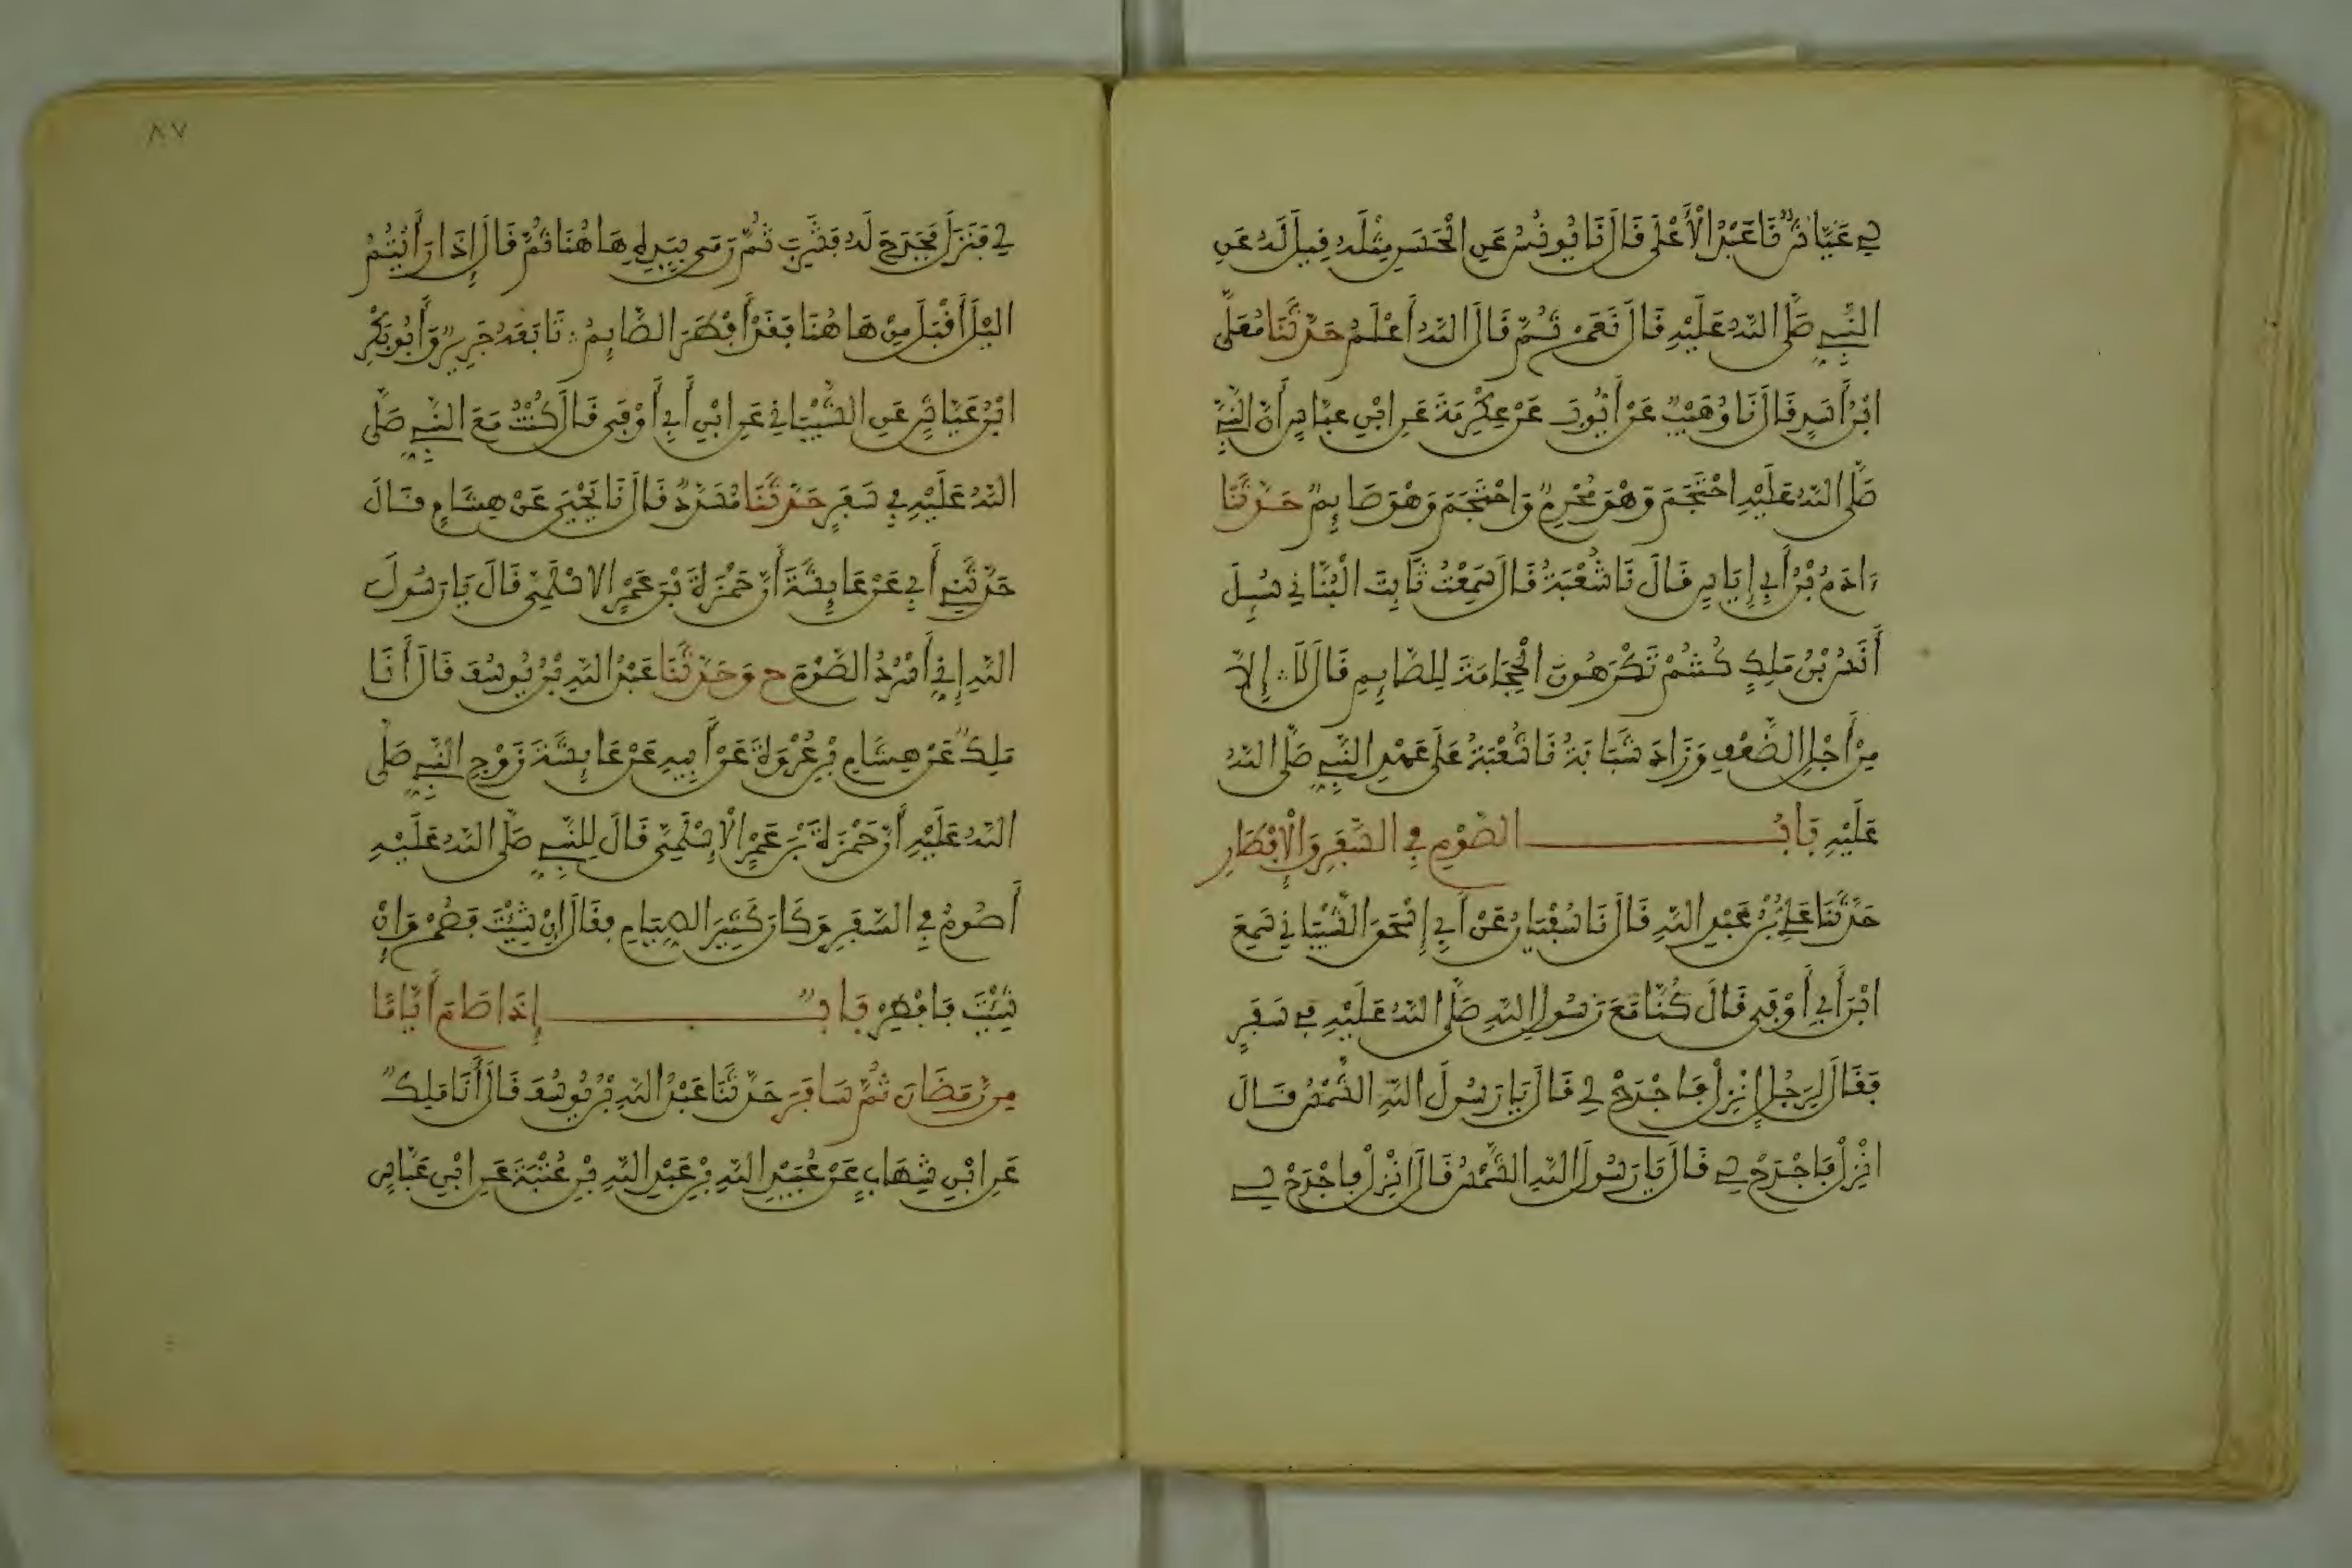 لِي عَيَّاشٌ نَا عَبْدُ الْأَعْلَى قَالَ نَا يُونُسُ عَنِ الْحَسَنِ مِثْلَهُ قِيلَ لَهُ عَنِ
النَّبِيِّ صَلَّى اللَّهُ عَلَيْهِ قَالَ نَعَمْ ثُمَّ قَالَ اللَّهُ أَعْلَمُ حَدَّثَنَا مُعَلَّى
ابْنُ أَسَدٍ قَالَ نَا وُهَيْبٌ عَنْ أَيُّوبَ عَنْ عِكْرِمَةَ عَنِ ابْنِ عَبَّاسٍ أَنَّ النَّبِيَّ
صَلَّى اللَّهُ عَلَيْهِ احْتَجَمَ وَهْوَ مُحْرِمٌ وَاحْتَجَمَ وَهْوَ صَايِمٌ حَدَّثَنَا
ءَادَمُ بْنُ أَبِي إِيَاسٍ قَالَ نَا شُعْبَةُ قَالَ سَمِعْتُ ثَابِتَ الْبُنَانِي سُيِلَ
أَنَسُ بْنُ مَلِكٍ كُنْتُمْ تَكْرَهُونَ الْحِجَامَةَ لِلصَّايِمِ قَالَ لَا إِلَّا
مِنْ أَجْلِ الضَّعْفِ وَزَادَ شَبَابَةُ نَا شُعْبَةُ عَلَى عَهْدِ النَّبِيِّ صَلَّى اللَّهُ
عَلَيْهِ بَابُ الصَّوْمِ فِي السَّفَرِ وَالْإِفْطَارِ
حَدَّثَنَا عَلِيُّ بْنُ عَبْدِ اللَّهِ قَالَ نَا سُفْيَانُ عَنْ أَبِي إِسْحَقَ الشَّيْبَانِي سَمِعَ
ابْنَ أَبِي أَوْفَى قَالَ كُنَّا مَعَ رَسُولِ اللَّهِ صَلَّى اللَّهُ عَلَيْهِ فِي سَفَرٍ
فَقَالَ لِرَجُلٍ انْزِلْ فَاجْدَحْ لِي قَالَ يَا رَسُولَ اللَّهِ الشَّمْسُ قَالَ
انْزِلْ فَاجْدَحْ لِي قَالَ يَا رَسُولَ اللَّهِ الشَّمْسُ قَالَ انْزِلْ فَاجْدَحْ لِي
٨٧
لِي فَنَزَلَ فَجَدَحَ لَهُ فَشَرِبَ ثُمَّ رَمَى بِيَدِهِ هَاهُنَا ثُمَّ قَالَ إِذَا رَأَيْتُمُ
اللَّيْلَ أَقْبَلَ مِنْ هَاهُنَا فَقَدْ أَفْطَرَ الصَّايِمُ تَابَعَهُ جَرِيرٌ وَأَبُو بَكْرِ
ابْنُ عَيَّاشٍ عَنِ الشَّيْبَانِي عَنِ ابْنِ أَبِي أَوْفَى قَالَ كُنْتُ مَعَ النَّبِيِّ صَلَّى
اللَّهُ عَلَيْهِ فِي سَفَرٍ حَدَّثَنَا مُسَدَّدٌ قَالَ نَا يَحْيَى عَنْ هِشَامٍ قَالَ
حَدَّثَنِي أَبِي عَنْ عَايِشَةَ أَنَّ حَمْزَةَ بْنَ عَمْرٍ الاسْلَمِيَّ قَالَ يَا رَسُولَ
اللَّهِ إِنِّي أَسْرُدُ الصَّوْمَ ح وَحَدَّثَنَا عَبْدُ اللَّهِ بْنُ يُوسُفَ قَالَ أَنَا
مَلِكٌ عَنْ هِشَامِ بْنِ عُرْوَةَ عَنْ أَبِيهِ عَنْ عَايِشَةَ زَوْجِ النَّبِيِّ صَلَّى
اللَّهُ عَلَيْهِ أَنَّ حَمْزَةَ بْنَ عَمْرٍ الْاسْلَمِيَّ قَالَ لِلنَّبِيِّ صَلَّى اللَّهُ عَلَيْهِ
أَصُومُ فِي السَّفَرِ وَكَانَ كَثِيرَ الصِّيَامِ فَقَالَ إِنْ شِيْتَ فَصُمْ وَإِنْ
شِيْتَ فَافْطِرْ بَابٌ إِذَا صَامَ أَيَّامًا
مِنْ رَمَضَانَ ثُمَّ سَافَرَ حَدَّثَنَا عَبْدُ اللَّهِ بْنُ يُوسُفَ قَالَ أَنَا مَلِكٌ
عَنِ ابْنِ شِهَابٍ عَنْ عُبَيْدِ اللَّهِ بْنِ عَبْدِ اللَّهِ بْنِ عُتْبَةَ عَنِ ابْنِ عَبَّاسٍ